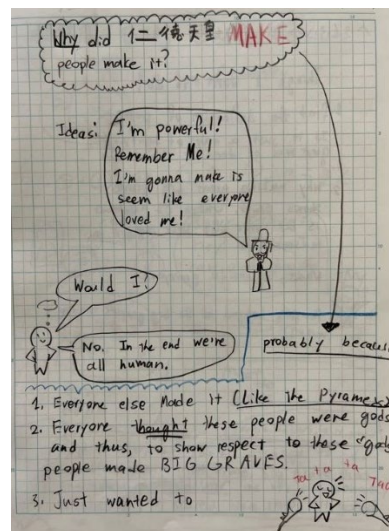 Why did 仁徳天皇 MAKE
people make it?
Ideas:
I'm powerful!
Remember Me!
I'm gonna make is
seem like everyone
loved me!
Would I?
No. In the end we're
all human.
probably becaus
1. Everyone else made it (Like the Pyrames)
2. Everyone thought these people were gods
and thus, to show respect to these "gods
people made BIG GRAVES.
3. Just wanted to
Ta ta ta